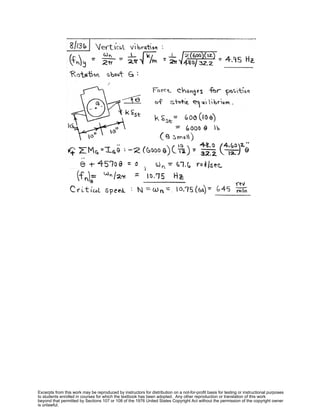 8/136 Vertical vibration :
(fn)y = ωn/2π = 1/2π √k/m = 1/2π √2(600)(12)/480/32.2 = 4.95 Hz
Rotation about G :
Force changes for position
of static equilibrium.
G
θ
kδst
kδst
10"
10"
kδst = 600 (10θ)
= 6000 θ lb
(θ small)
ΣMG = IG θ̈ : -2 (6000 θ)(10/12) = 480/32.2 (4.60/12)² θ̈
θ̈ + 4570 θ = 0 , ωn = 67.6 rad/sec
(fn)θ = ωn/2π = 10.75 Hz
Critical speed : N = ωn = 10.75 (60) = 645 rev/min
Excerpts from this work may be reproduced by instructors for distribution on a not-for-profit basis for testing or instructional purposes
to students enrolled in courses for which the textbook has been adopted. Any other reproduction or translation of this work
beyond that permitted by Sections 107 or 108 of the 1976 United States Copyright Act without the permission of the copyright owner
is unlawful.